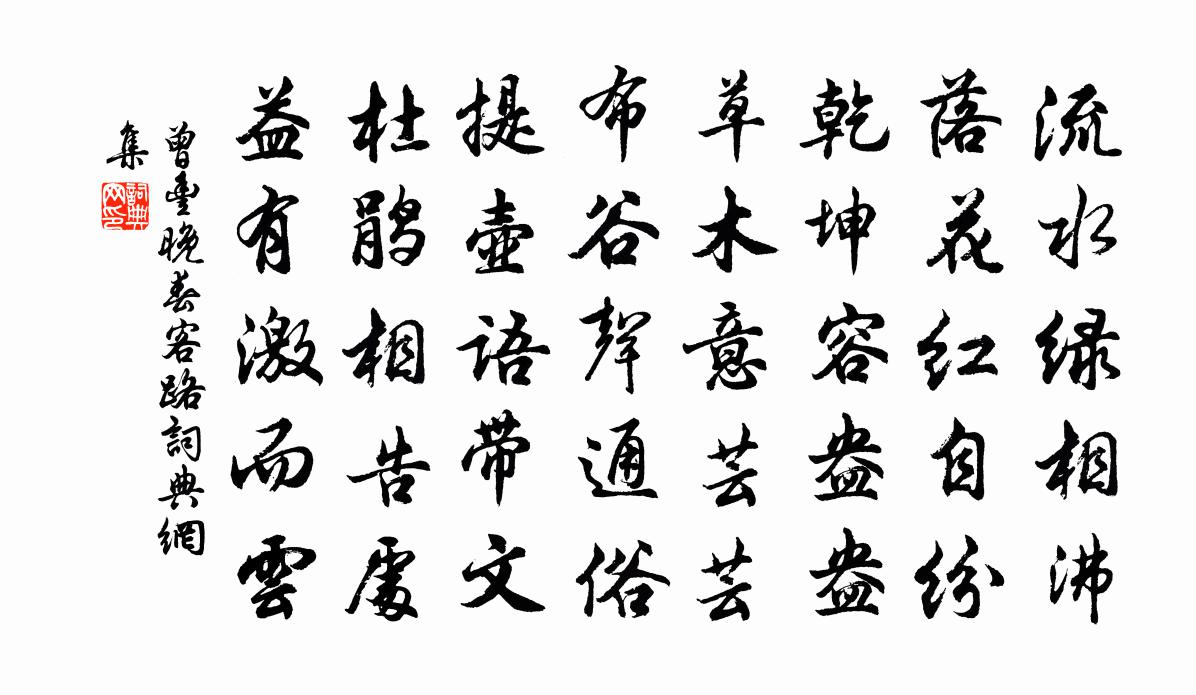 流水绿相沸
落花红自纷
乾坤容盎盎
草木意芸芸
布谷聲通俗
提壺语带文
杜鹃相告處
益有激而雲
曾豊晚春客路詞典網
集
詞典
网印